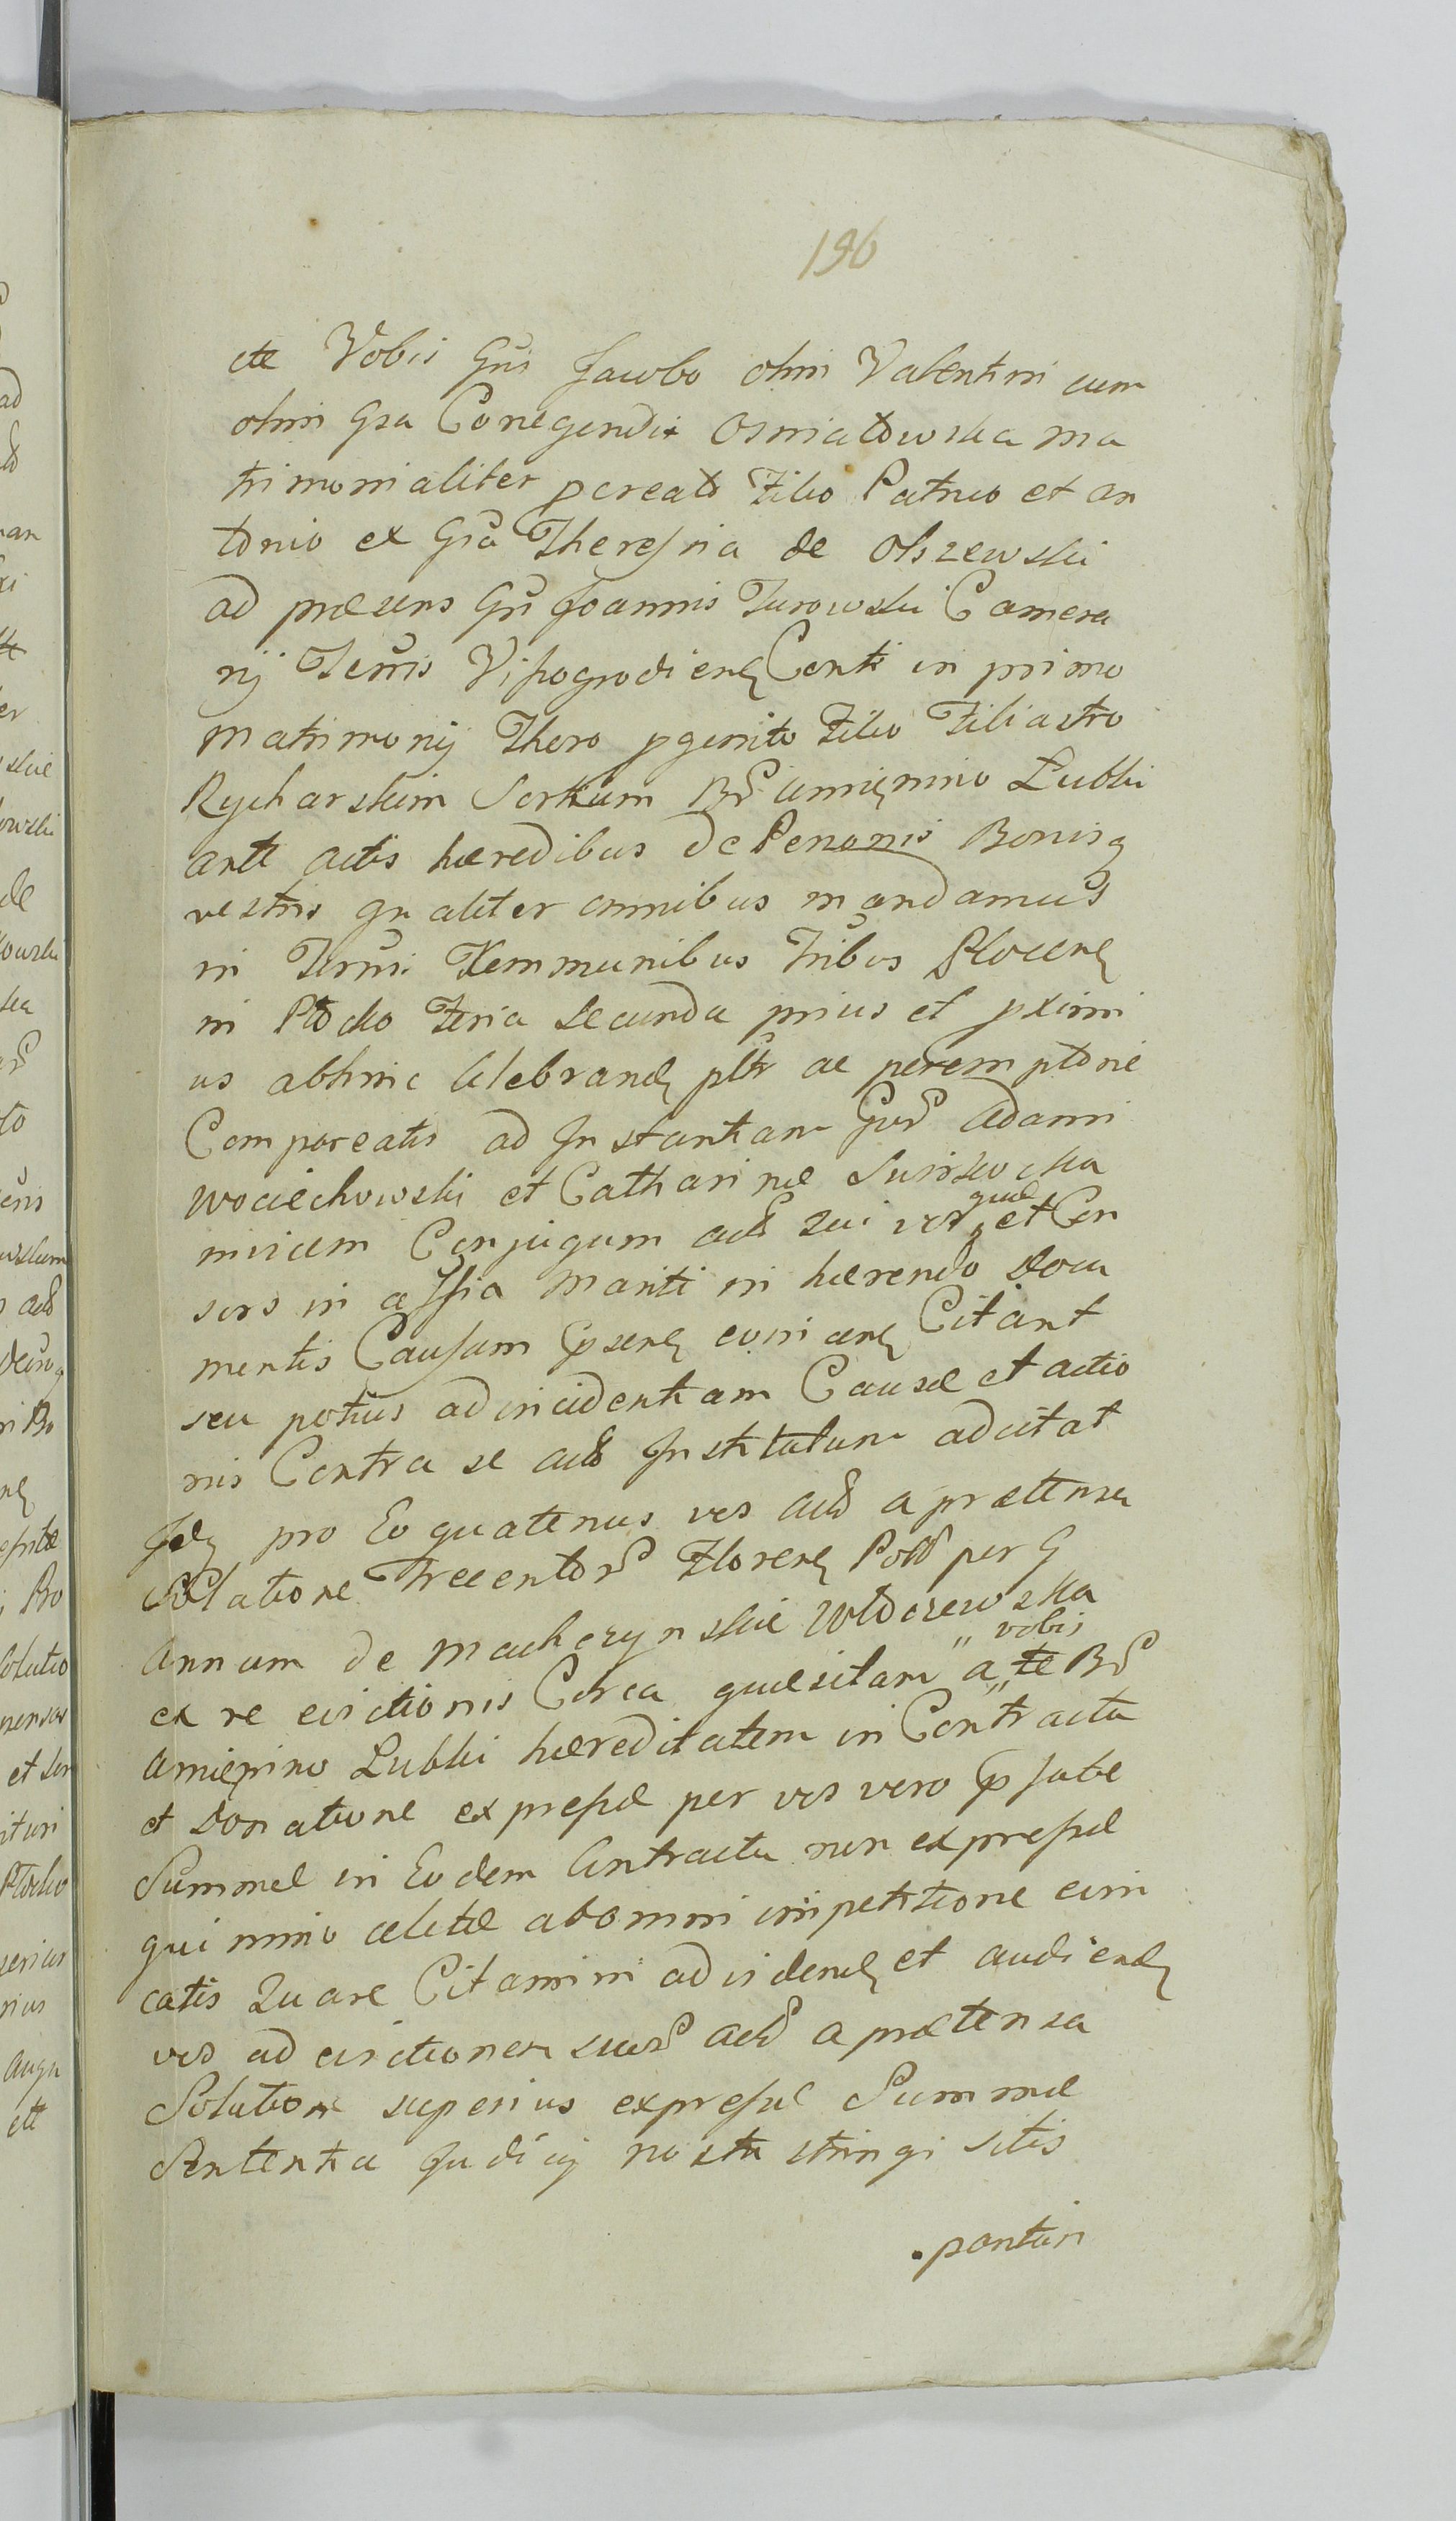 196
cte Vobis Gñis Jacobo olim Valentini cum
olim Gsa Conegundis Osmiatowska ma
trimonialiter pcreato Filio Patruo et An
tonio ex Gsã Theresria de Olszewski
ad præsens Gñ Joannis Turowski Camera
rij Terrñs Visogrodienς Conti in primo
Matrimonij Thoro pgenito Filio Filiastro
Rycharskim Sortium Bõr Amięnino Lubki
ante actis hæredibus de Personis Bonisq
vestris gnaliter omnibus mandamus
in Trmis Kemmunibus Tribus Plocenς
in Płocko Feria Secunda prius et pximi
us abhinc Celebrandς pltr ac peremptorie
Compareatis ad Instantiam Gnor Adami
Wociechowski et Catharinæ
invicem Conjugum act sui vos quæ et Con
sors in assia Mariti in hærendo Docu
mentis Causam Citant
seu potius ad incidentiam Causæ et actio
nis Contra se act Institutam adcitat
Idς pro Eo quatenus vos act a prætensa
Solutione Trecentor Florenς Poll per G
Annam de Machczynskie Wtoczewska
ex re evictionis Circa quæsitam a te vobis Bõr
Amięnino Lubki hæreditatem in Contractu
et Donatione expressæ per vos vero
Summæ in Eodem Contractu non expressæ
qui nimo celatæ ab omni impetitione evin
catis Quare Citamini ad videndς et audiendς
vos ad evictionem suor act a prætensa
Solutione superius expressæ Summæ
Sententia Judicij nostri stringi sitis
pontur